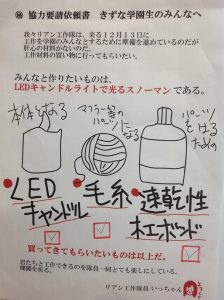 ㊙ 協力要請依頼書 きずな学園生のみんなへ
我々リアン工作隊は、来る12月13日に
工作を学園のみんなとするために準備を進めているのだが
肝心の材料がないのだ。
工作材料の買い物に行ってもらいたい。
みんなと作りたいものは、
LEDキャンドルライトで光るスノーマンである。
本体となる
マフラー等のパーツになる
パーツをはるための
•LEDキャンドル
•毛糸
•速乾性木工ボンド
買ってきてもらいたいものは以上だ。
君たちと工作できるのを隊員一同とても楽しみにしている。
健闘を祈る。
リアン工作隊員 いっちゃん